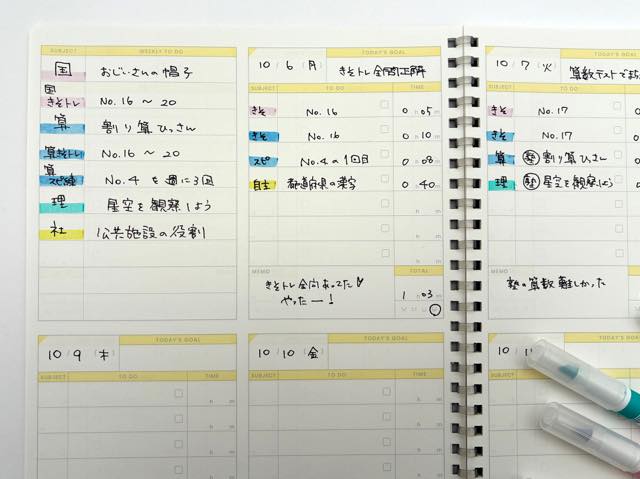 SUBJECT WEEKLY TO DO
国 おじいさんの帽子
国
きそトレ No.16 〜 20
算 割り算ひっさん
算きそトレ No.16 〜 20
算
スピ練 No.4 を週に3回
理 星空を観察しよう
社 公共施設の役割
TODAY'S GOAL
10 / 6 (月) きそトレ全問正解
SUBJECT TO DO TIME
きそ No.16 0 h 05 m
きそ No.16 0 h 10 m
スピ No.4の1回目 0 h 08 m
自主 都道府県の漢字 0 h 40 m
h m
h m
MEMO TOTAL
きそトレ全問あってた♡
やったー! 1 h 03 m
TODAY'S GOAL
10 / 7 (火) 算数テストで
SUBJECT TO DO
きそ No.17
きそ No.17
算 塾 割り算ひっさん
理 塾 星空を観察しよう
MEMO
塾の算数難しかった
TODAY'S GOAL
10 / 9 (木)
SUBJECT TO DO TIME
h m
h m
h m
TODAY'S GOAL
10 / 10 (金)
SUBJECT TO DO TIME
h m
h m
h m
TODAY'S GOAL
10 /
SUBJECT TO DO